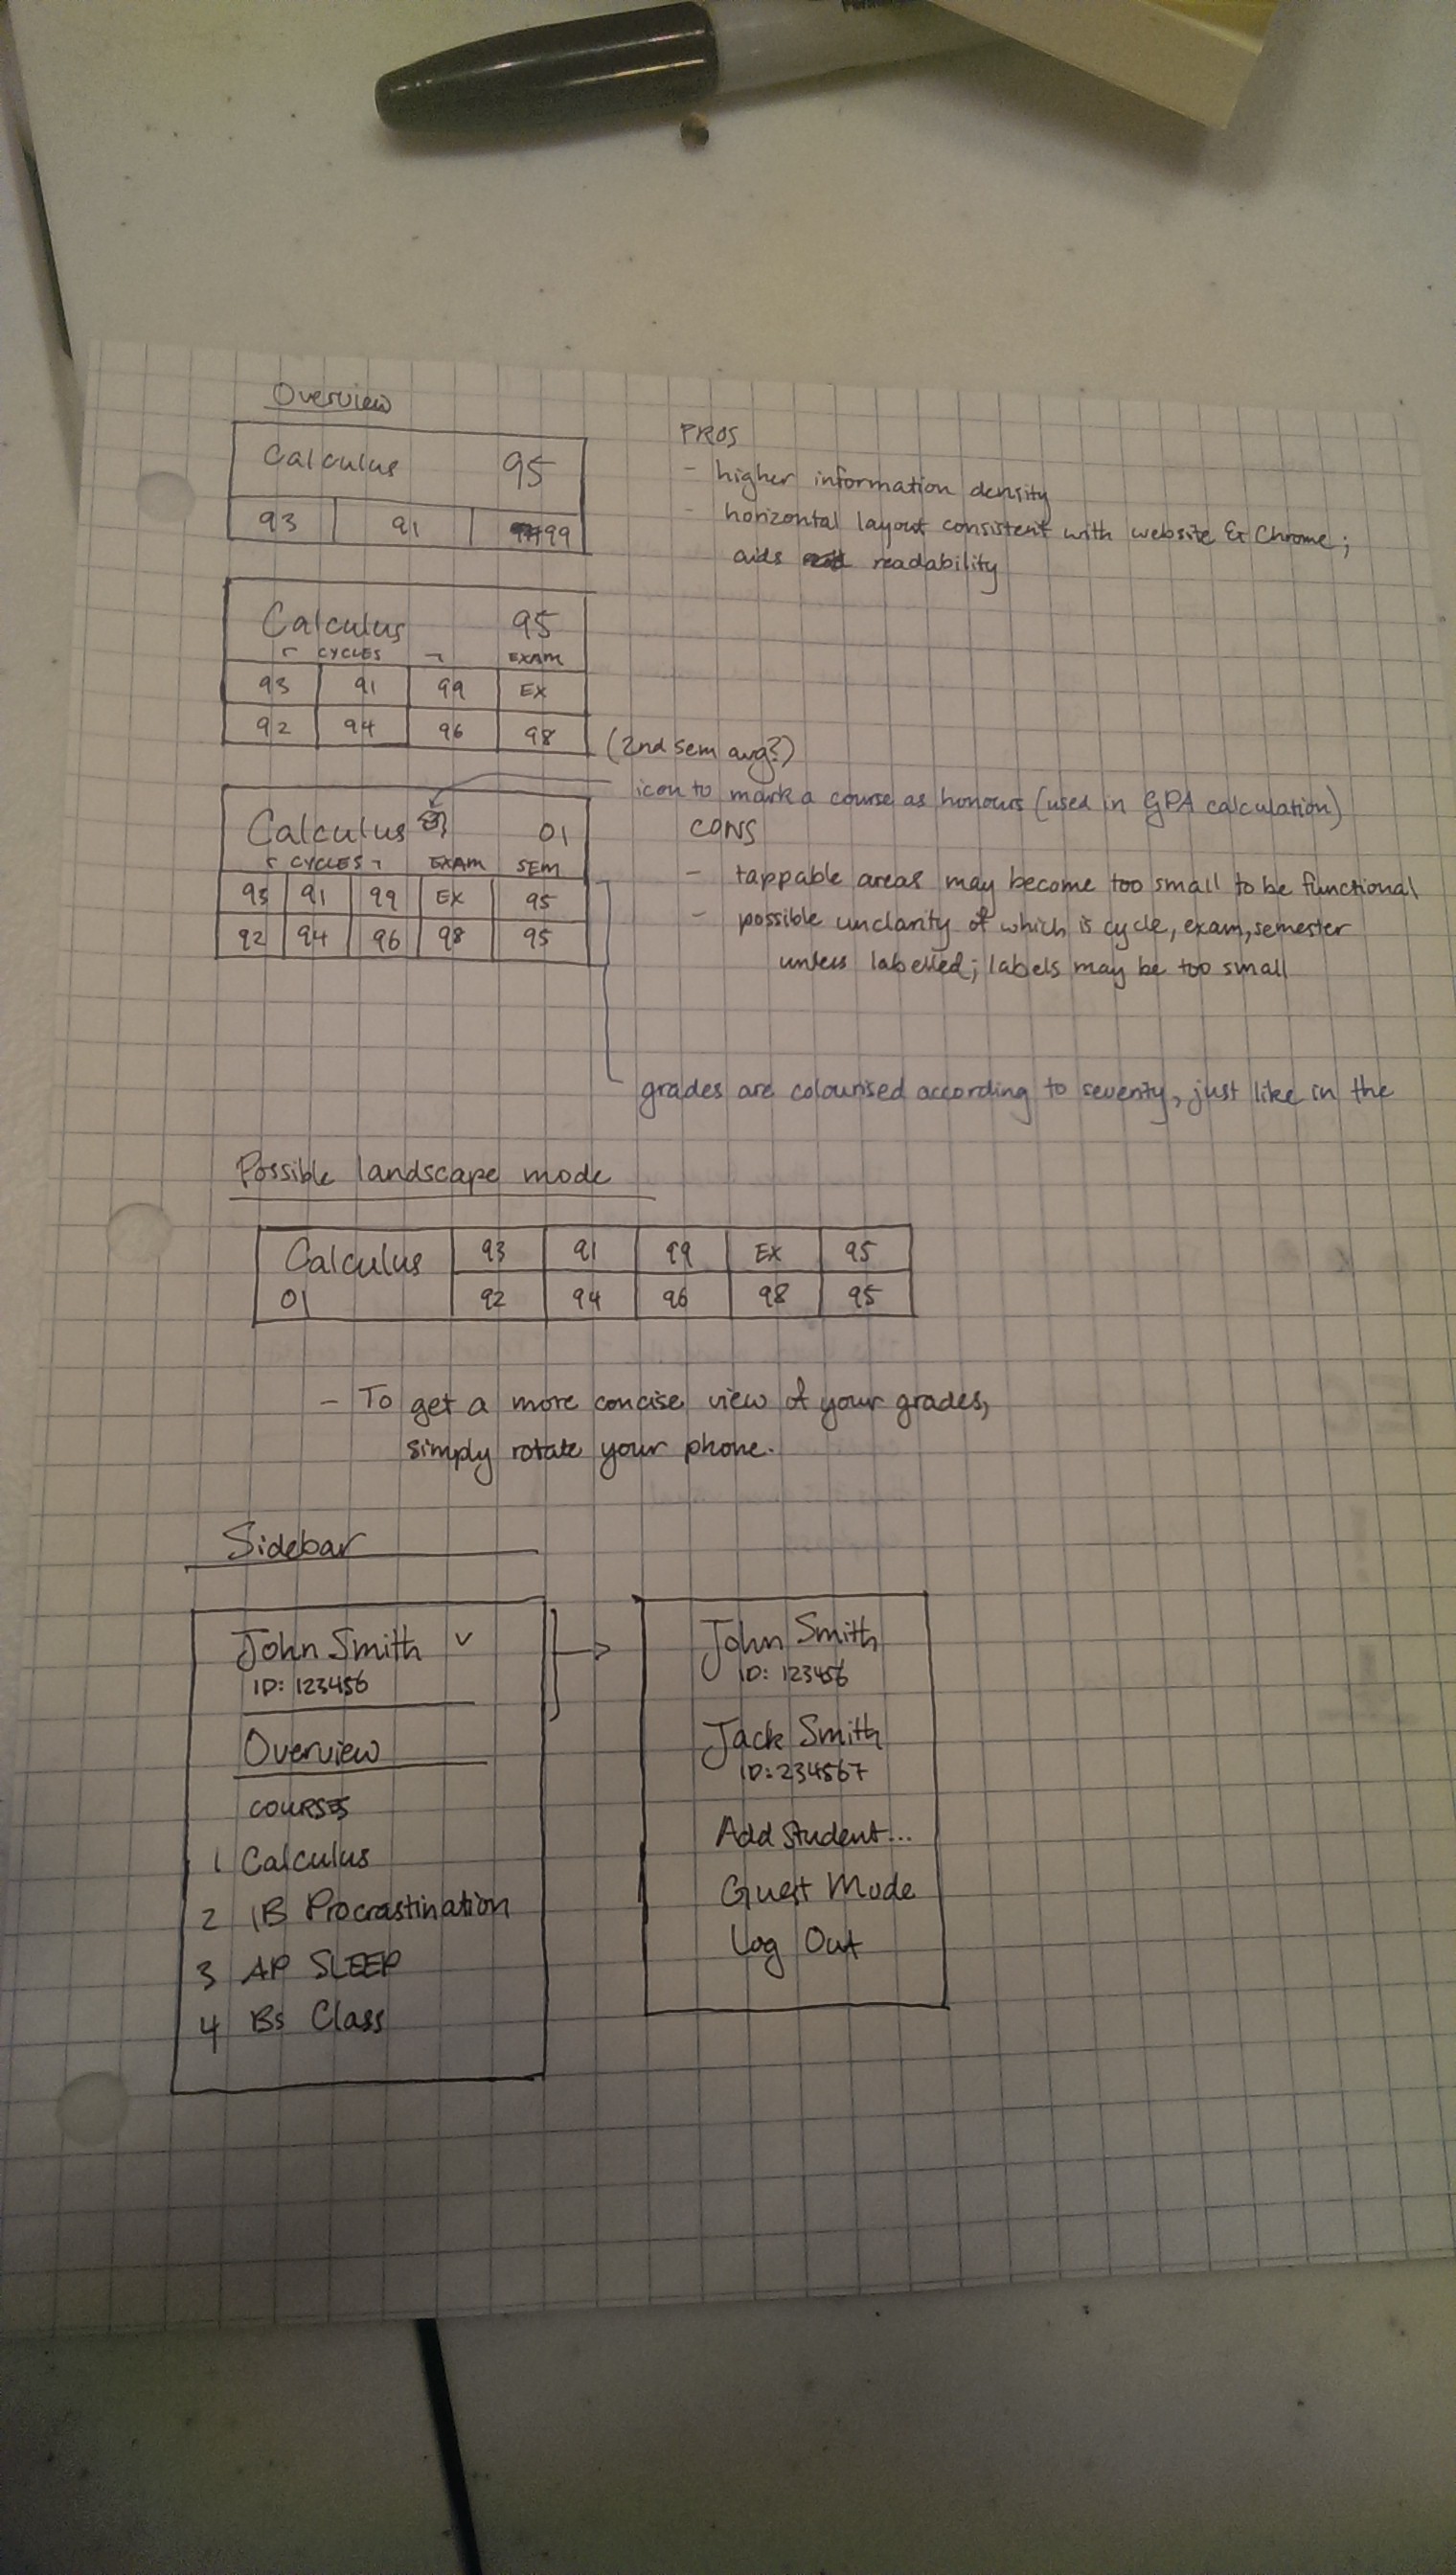 Overview
Calculus 95
93 91 99
PROS
- higher information density
- horizontal layout consistent with website & Chrome;
aids readability
Calculus 95
CYCLES EXAM
93 91 99 EX
92 94 96 98
(2nd sem avg?)
icon to mark a course as honours (used in GPA calculation)
Calculus 01
CYCLES EXAM SEM
93 91 99 EX 95
92 94 96 98 95
CONS
- tappable areas may become too small to be functional
- possible unclarity of which is cycle, exam, semester
unless labelled; labels may be too small
grades are colourised according to severity, just like in the
Possible landscape mode
Calculus 93 91 99 EX 95
01 92 94 96 98 95
- To get a more concise view of your grades,
simply rotate your phone.
Sidebar
John Smith v
ID: 123456
Overview
COURSES
1 Calculus
2 IB Procrastination
3 AP SLEEP
4 BS Class
John Smith
ID: 123456
Jack Smith
ID: 234567
Add Student...
Guest Mode
Log Out